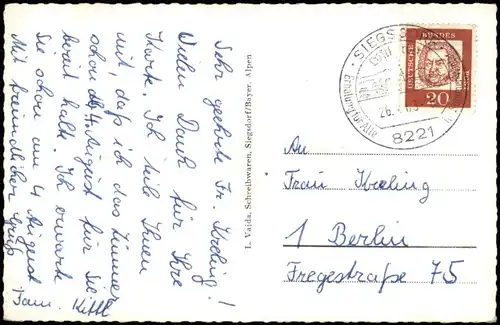 Sehr geehrte Fr. Kreling!
Vielen Dank für Ihre
Karte. Ich teile Ihnen
mit, daß ich das Zimmer
schon ab 4. August für Sie
bereit halte. Ich erwarte
Sie schon am 4. August
Mit freundlicher Gruß
Fam. Kittl
L. Vajda, Schreibwaren, Siegsdorf/Bayer. Alpen
SIEGSD
8221
DEUTSCHE BUNDESPOST
20
An
Frau Kreling
1 Berlin
Fregestraße 75